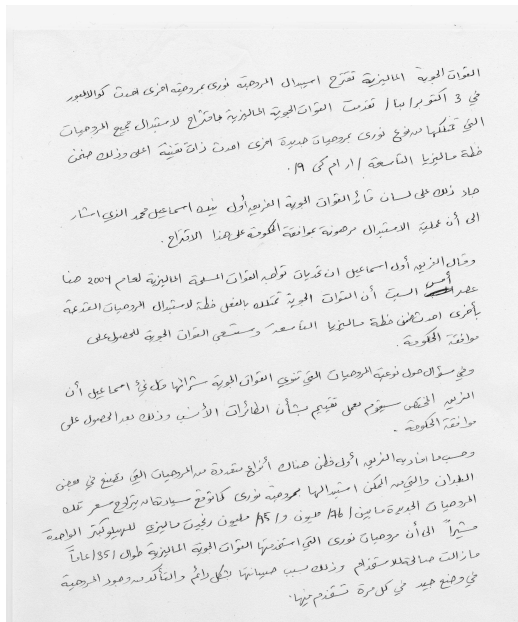 القوات الجوية الماليزية تقترح استبدال المروحية نوري بمروحية اخرى احدث كوالالمبور
في 3 اكتوبر / نبا / تقدمت القوات الجوية الماليزية باقتراح لاستبدال جميع المروحيات
التي تمتلكها من نوع نوري بمروحيات جديدة اخرى احدث ذات تقنية اعلى وذلك ضمن
خطة ماليزيا التاسعة / ار ام كي 9/.
جاء ذلك على لسان قائد القوات الجوية الفريق أول نيك اسماعيل محمد الذي اشار
الى أن عملية الاستبدال مرهونة بموافقة الحكومة على هذا الاقتراح.
وقال الفريق أول اسماعيل ان تحديات تواجه القوات المسلحة الماليزية لعام 2004 هنا
عصر أمس السبت أن القوات الجوية تمتلك بالفعل خطة لاستبدال المروحيات القديمة
بأخرى احدث ضمن خطة ماليزيا التاسعة وستسعى القوات الجوية للحصول على
موافقة الحكومة.
وفي سؤال حول نوعية المروحيات التي تنوي القوات الجوية شرائها قال نيك اسماعيل أن
الفريق المختص سيقوم بعمل تقييم بشأن الطائرات الأنسب وذلك بعد الحصول على
موافقة الحكومة.
وحسب ما افاد به الفريق أول فطن هناك أنواع متعددة من المروحيات التي تصنع في بعض
البلدان والتي من الممكن استبدالها بمروحية نوري كما توقع سيادته ان يتراوح سعر تلك
المروحيات الجديدة ما بين /76/ مليون و /95/ مليون رنجيت ماليزي للهيلوكبتر الواحدة
مشيراً الى أن مروحيات نوري التي استخدمتها القوات الجوية الماليزية طوال /35/ عاماً
ما زالت صالحة للاستخدام وذلك بسبب صيانتها بشكل دائم والتأكد من وجود المروحية
في وضع جيد في كل مرة تستخدم فيها.